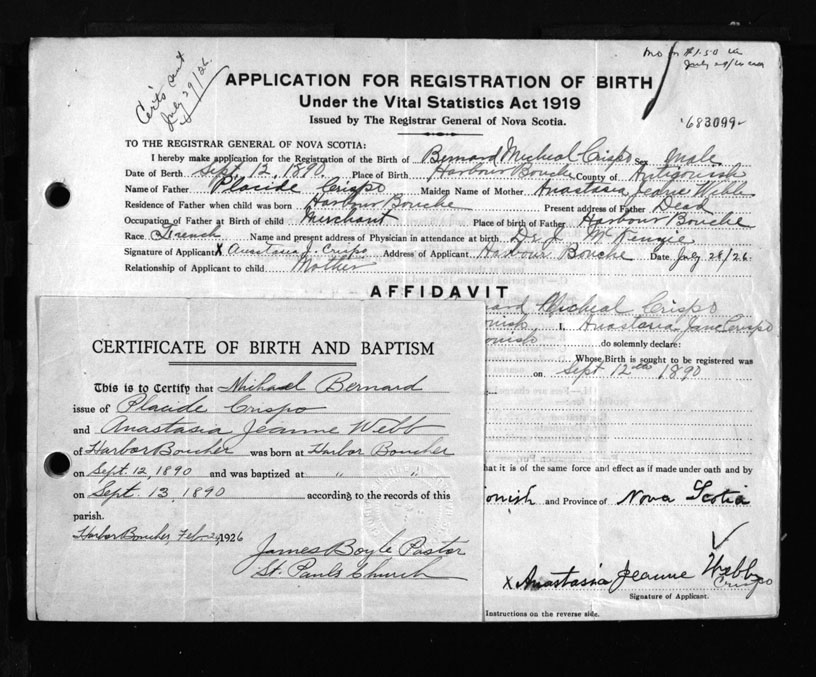 Cert's sent
July 29/26.
July 29/26
683099
APPLICATION FOR REGISTRATION OF BIRTH
Under the Vital Statistics Act 1919
Issued by The Registrar General of Nova Scotia.
TO THE REGISTRAR GENERAL OF NOVA SCOTIA:
I hereby make application for the Registration of the Birth of Bernard Micheal Crispo Sex Male
Date of Birth Sept. 12, 1890. Place of Birth Harbour Bouche County of Antigonish
Name of Father Placide Crispo Maiden Name of Mother Anastasia Jeane Webb
Residence of Father when child was born Harbour Bouche Present address of Father Dead
Occupation of Father at Birth of child Merchant Place of birth of Father Harbour Bouche
Race French Name and present address of Physician in attendance at birth Dr J. McKenzie
Signature of Applicant X Anastasia J. Crispo Address of Applicant Harbour Bouche Date July 28/26.
Relationship of Applicant to child Mother
AFFIDAVIT
nard Micheal Crispo
onish I, Anastasia Jane Crispo
onish do solemnly declare:
Whose Birth is sought to be registered was
on Sept 12th 1890
hat it is of the same force and effect as if made under oath and by
onish and Province of Nova Scotia
X Anastasia Jeanne Webb
Crispo
Signature of Applicant.
Instructions on the reverse side.
CERTIFICATE OF BIRTH AND BAPTISM
This is to Certify that Michael Bernard
issue of Placide Crispo
and Anastasia Jeanne Webb
of Harbor Boucher was born at Harbor Boucher
on Sept. 12, 1890 and was baptized at " "
on Sept. 13, 1890 according to the records of this
parish.
Harbor Boucher, Feb. 1926
James Boyle Pastor
St. Pauls Church